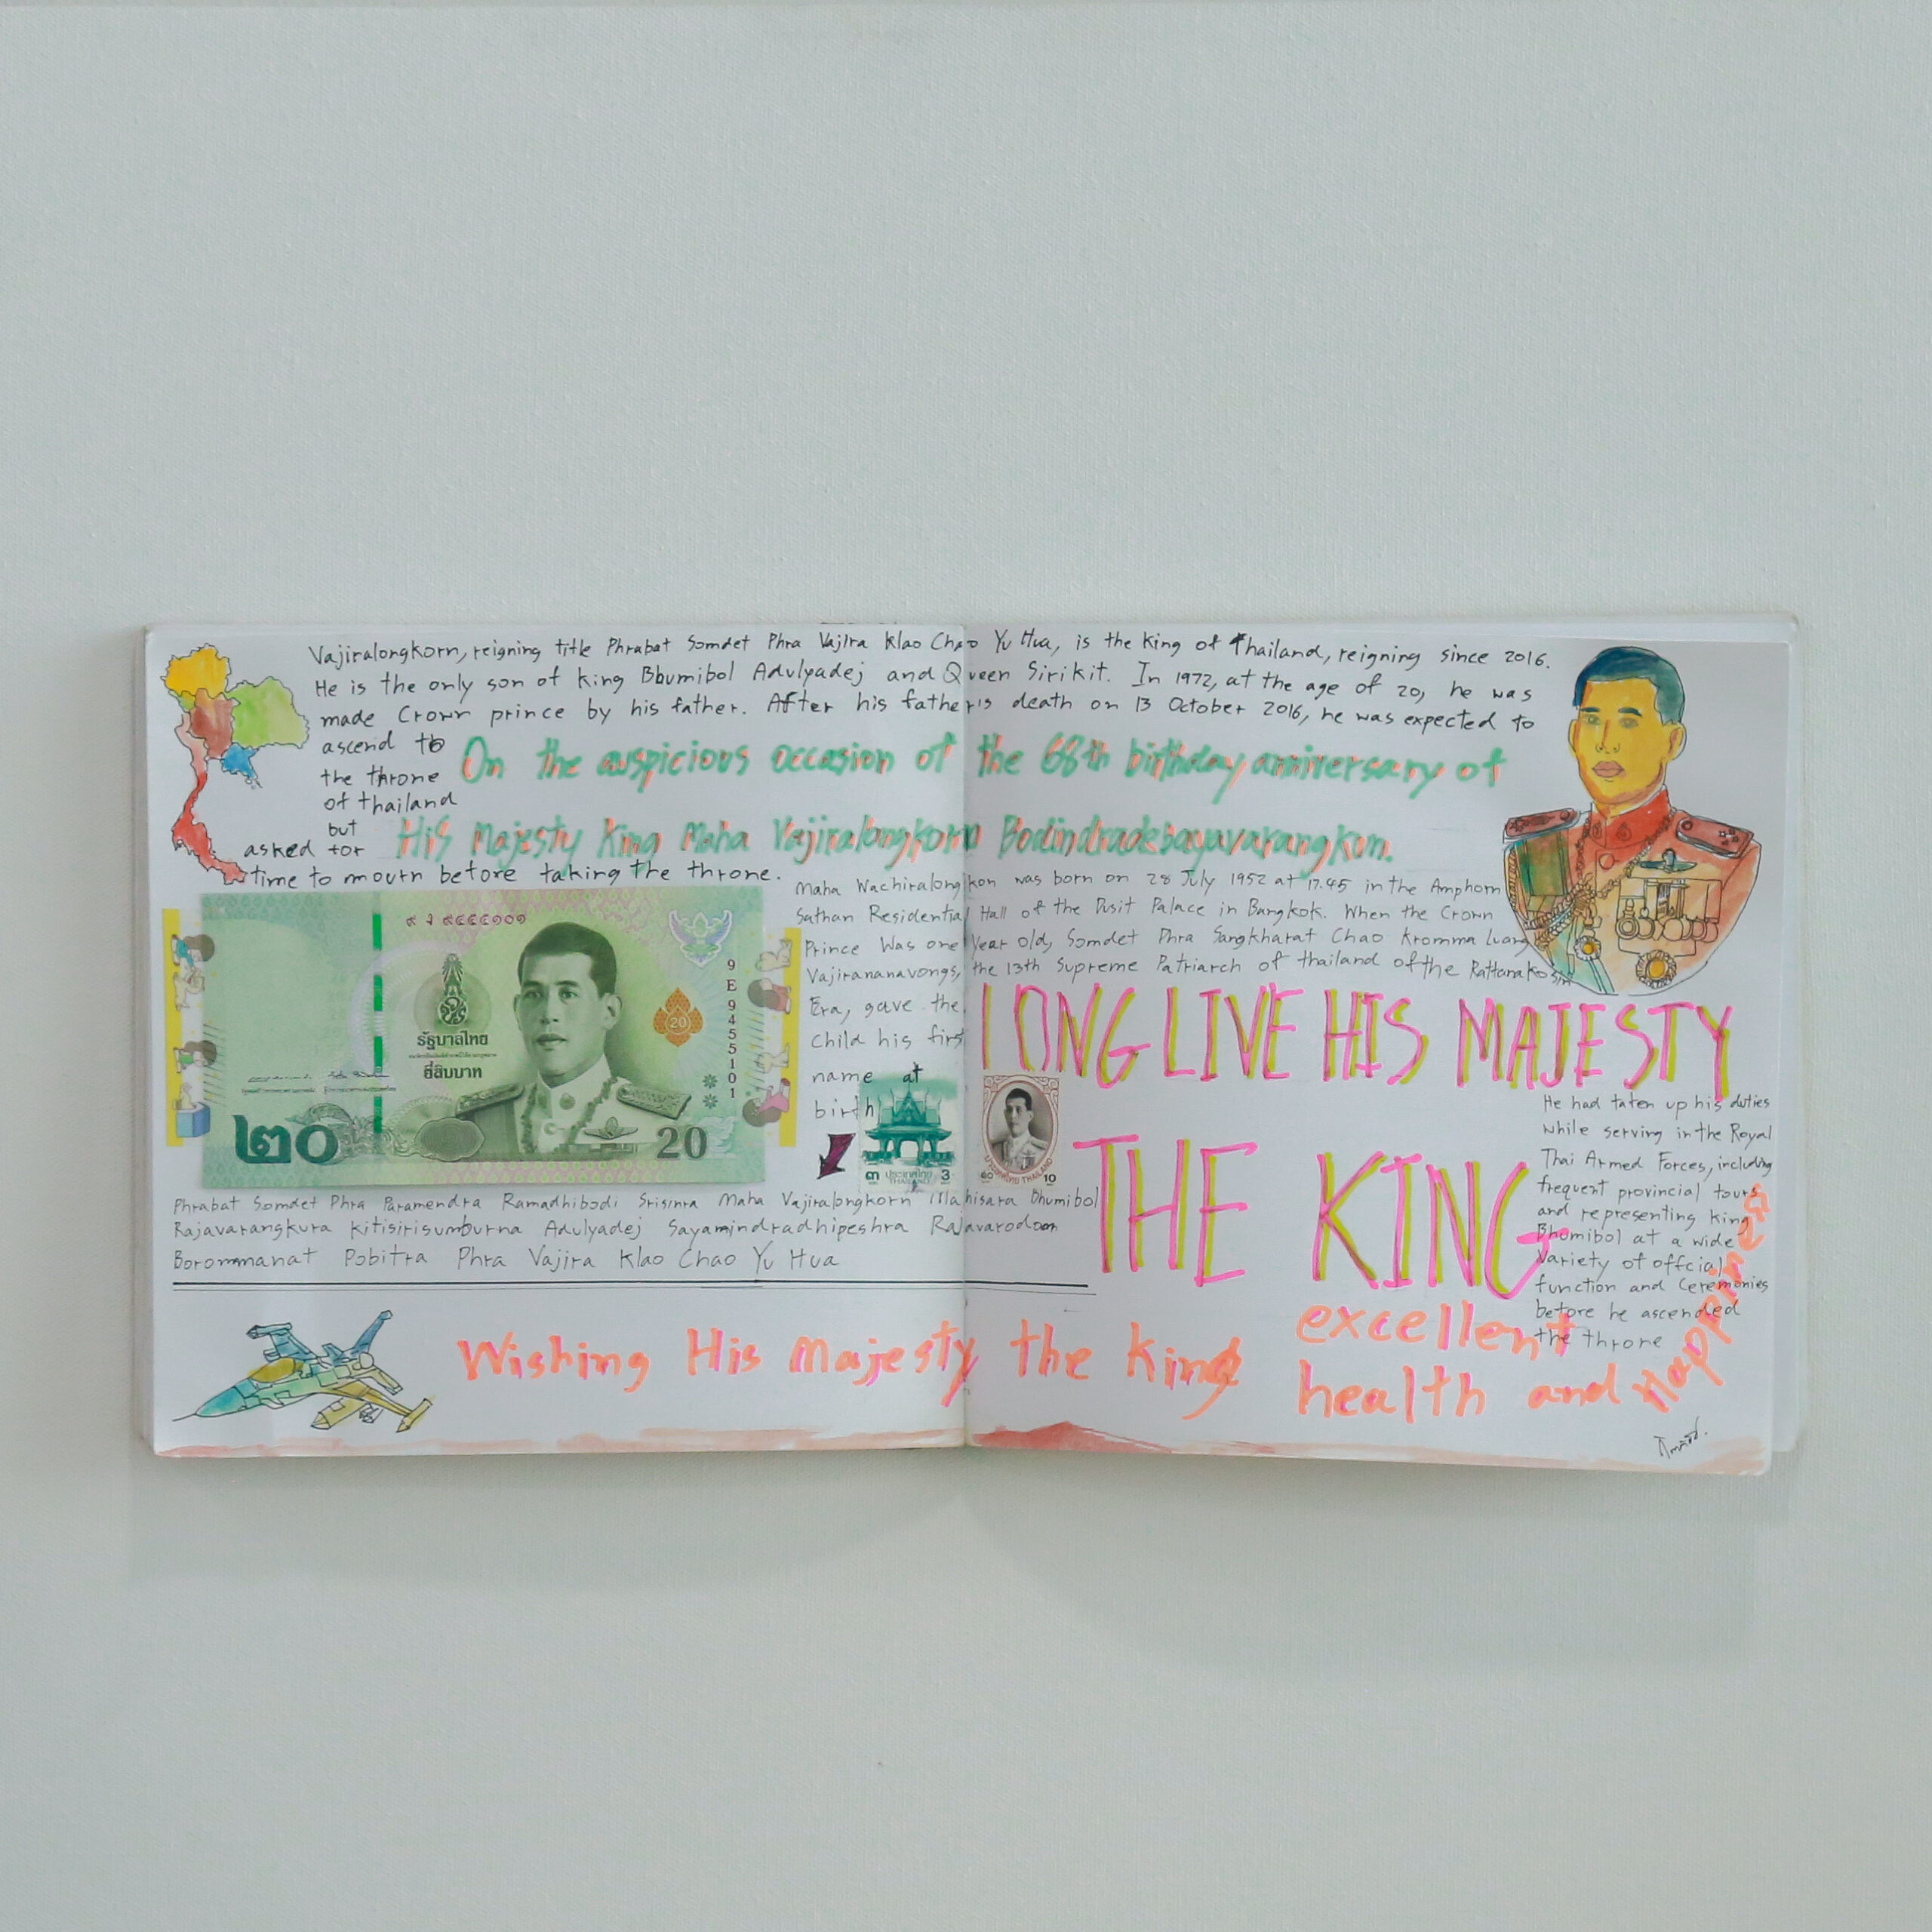 Vajiralongkorn, reigning title Phrabat Somdet Phra Vajira Klao Chao Yu Hua, is the King of Thailand, reigning since 2016.
He is the only son of king Bhumibol Adulyadej and Queen Sirikit. In 1972, at the age of 20, he was
made Crown prince by his father. After his father's death on 13 October 2016, he was expected to
ascend to
the throne
of thailand
but
asked for
time to mourn before taking the throne.
On the auspicious occasion of the 68th birthday anniversary of
His Majesty King Maha Vajiralongkorn Bodindradebayavarangkun.
Maha Wachiralongkon was born on 28 July 1952 at 17.45 in the Amphorn
Sathan Residential Hall of the Dusit Palace in Bangkok. When the Crown
Prince Was one Year old, Somdet Phra Sangkharat Chao Kromma Luang
Vajirananavongs, the 13th Supreme Patriarch of thailand of the Rattanakosin
Era, gave the
child his first
name at
birth
๙ ๅ ๙๔๕๕๑๐๑
รัฐบาลไทย
ยี่สิบบาท
๒๐
20
20
9E 9455101
๓
ประเทศไทย
THAILAND
3
10
LONG LIVE HIS MAJESTY
THE KING
He had taken up his duties
while serving in the Royal
Thai Armed Forces, including
frequent provincial tours
and representing king
Bhumibol at a wide
variety of offcial
function and Ceremonies
before he ascended
the throne
Phrabat Somdet Phra Paramendra Ramadhibodi Srisinra Maha Vajiralongkorn Mahisara Bhumibol
Rajavarangkura Kitisirisumburna Adulyadej Sayamindradhipeshra Rajavarodom
Borommanat Pobitra Phra Vajira Klao Chao Yu Hua
Wishing His Majesty the King
excellent
health and Happiness